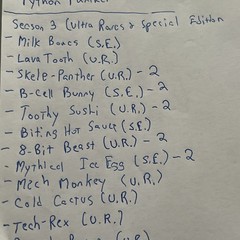 Python
Season 3 (Ultra Rares & Special Edition
- Milk Bones (S.E.)
- Lava Tooth (U.R.)
- Skele-Panther (U.R.) - 2
- B-Cell Bunny (S.E.) - 2
- Toothy Sushi (U.R.) - 2
- Biting Hot Sauce (S.E.)
- 8-Bit Beast (U.R.) - 2
- Mythical Ice Egg (S.E.) - 2
- Mech Monkey (U.R.)
- Cold Cactus (U.R.)
- Tech-Rex (U.R.)